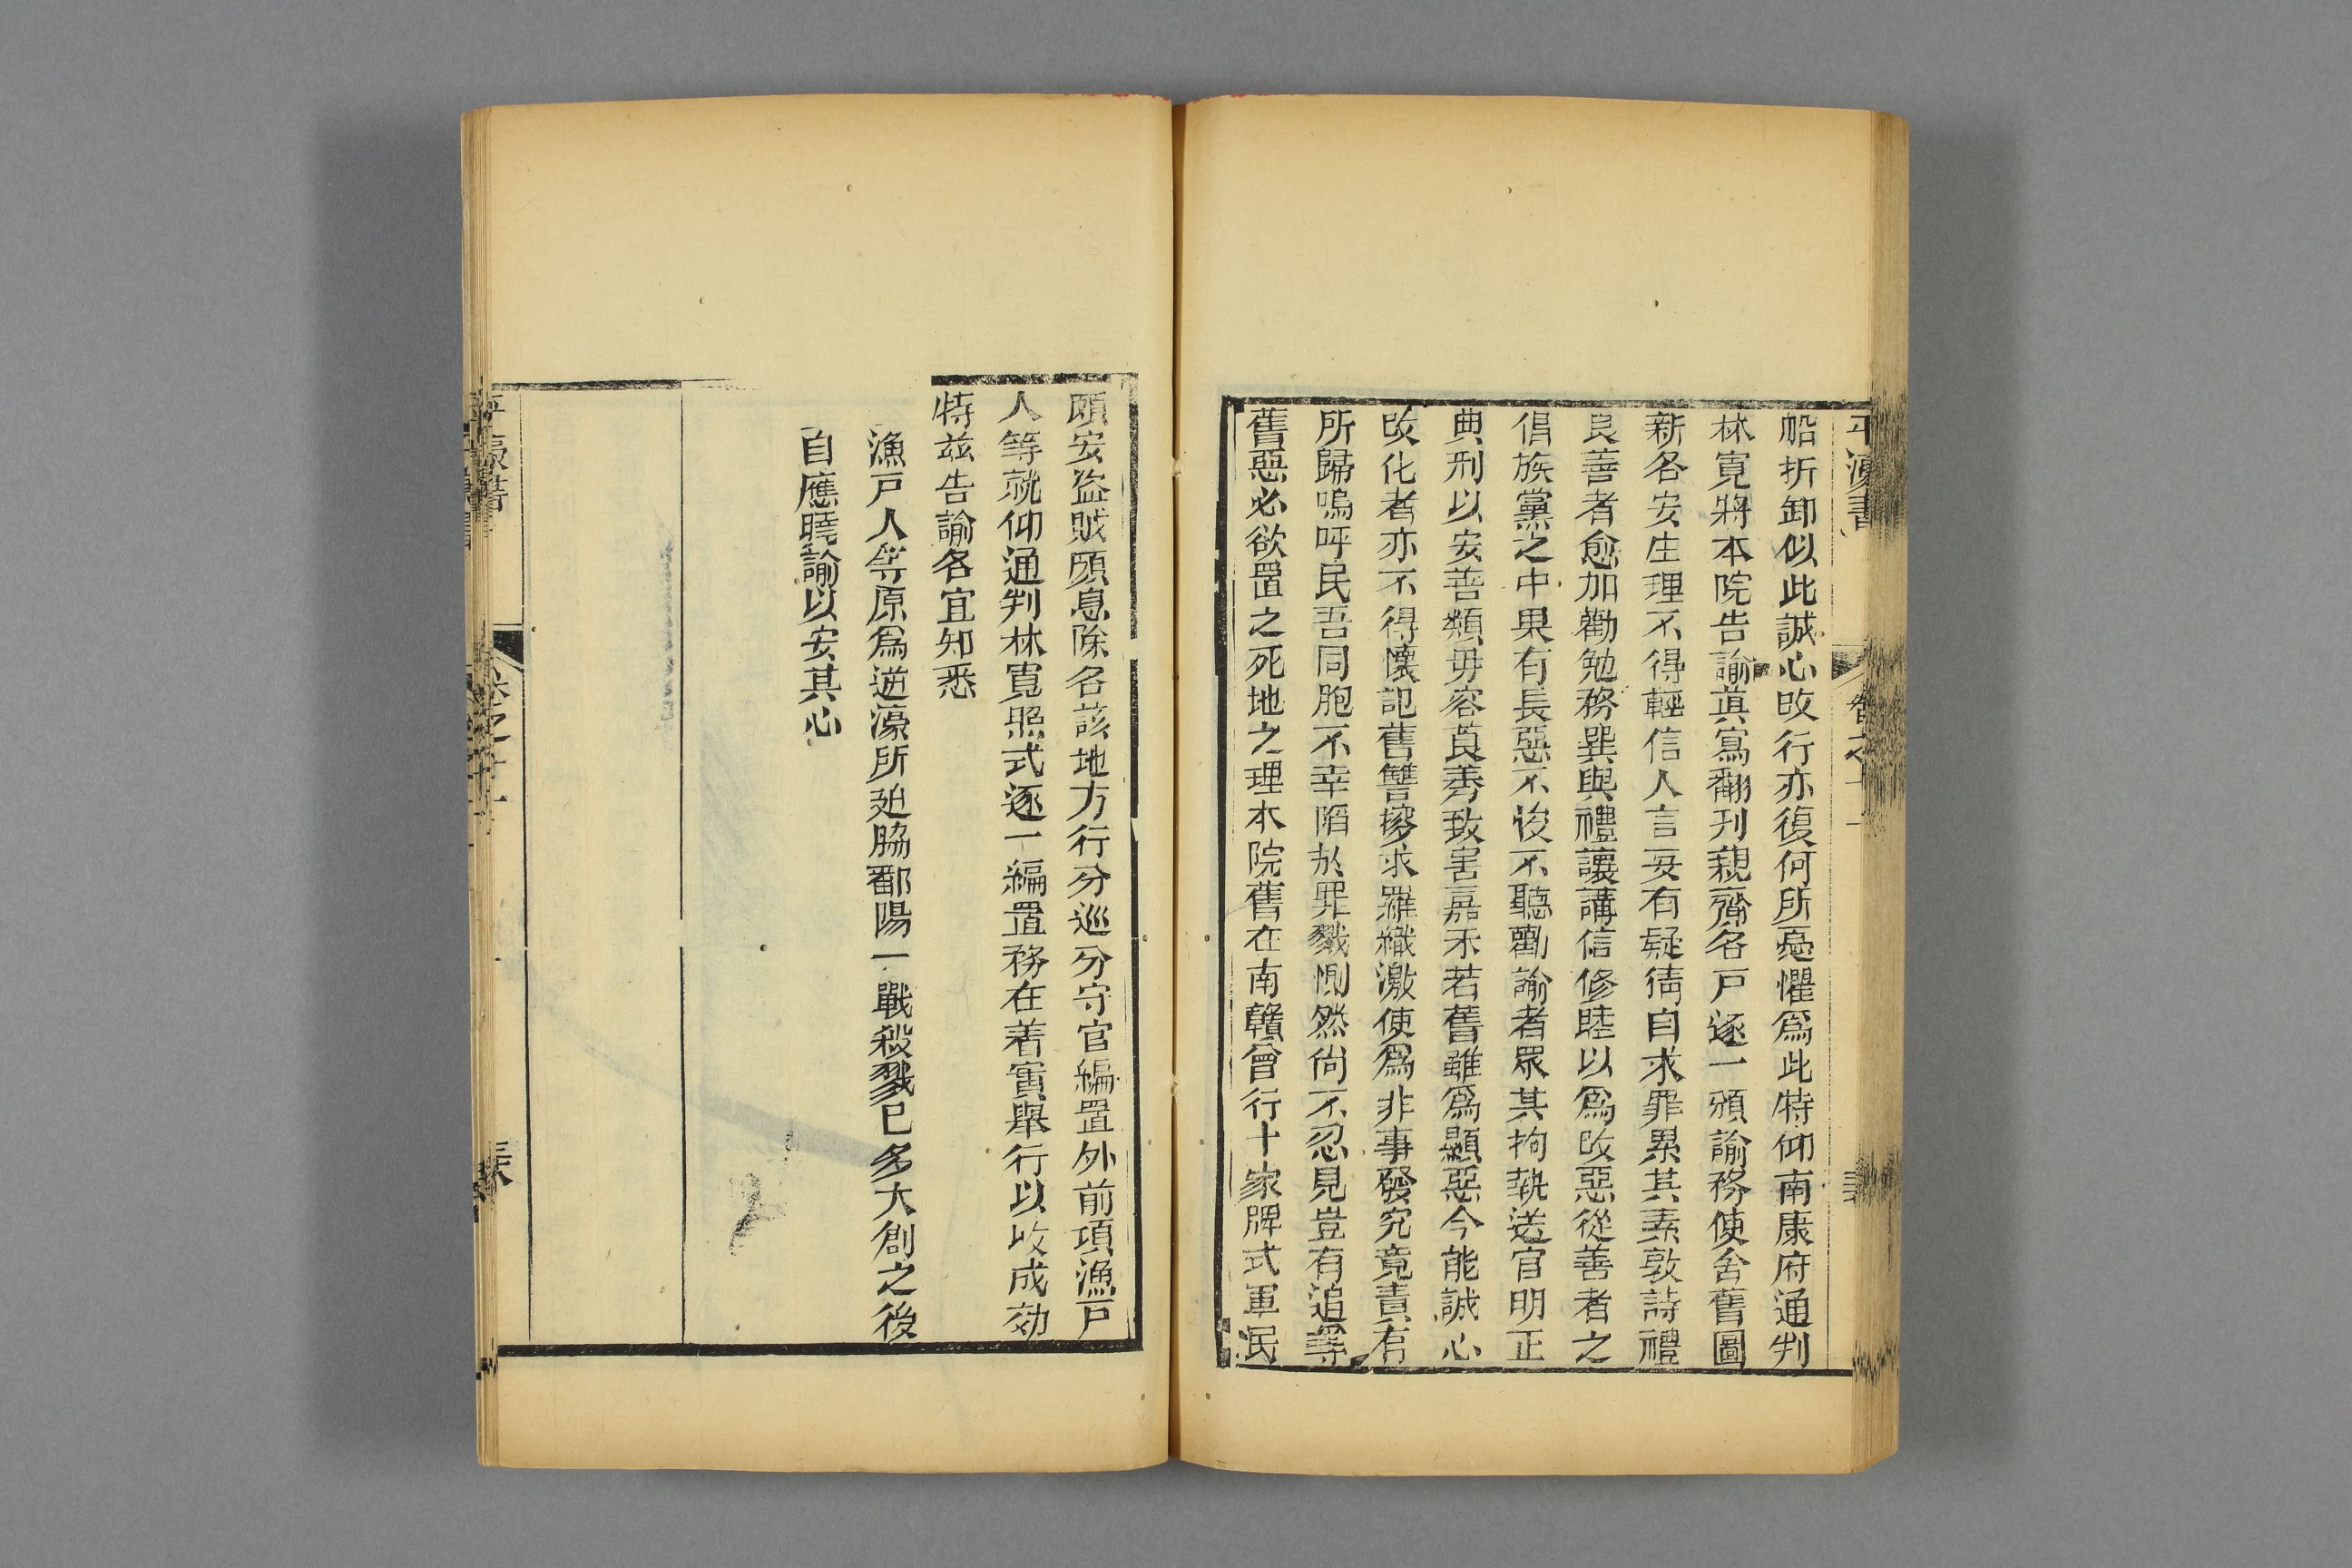 平濠書
卷之十一
船折卸似此誠心改行亦復何所憂懼爲此特仰南康府通判
林寬將本院告諭眞寫翻刋親齎各戸逐一頒諭務使舍舊圖
新各安生理不得輕信人言妄有疑猜自求罪累其素敦詩禮
良善者愈加勸勉務巽與禮讓講信修睦以爲改惡從善者之
倡族黨之中果有長惡不悛不聽勸諭者衆其拘執送官明正
典刑以安善類毋容莨莠致害嘉禾若舊雖爲顯惡今能誠心
改化者亦不得懷記舊讐搜求羅織激使爲非事發究竟責有
所歸嗚呼民吾同胞不幸陷於罪戮惻然尚不忍見豈有追尋
舊惡必欲置之死地之理本院舊在南贛曾行十家牌式軍民
頗安盜賊頗息除各該地方行分巡分守官編置外前項漁戸
人等就仰通判林寬照式逐一編置務在着實舉行以收成効
特茲告諭各宜知悉
漁戸人等原爲逆濠所廹脇鄱陽一戰殺戮已多大創之後
自應曉諭以安其心
平濠書
卷之十一